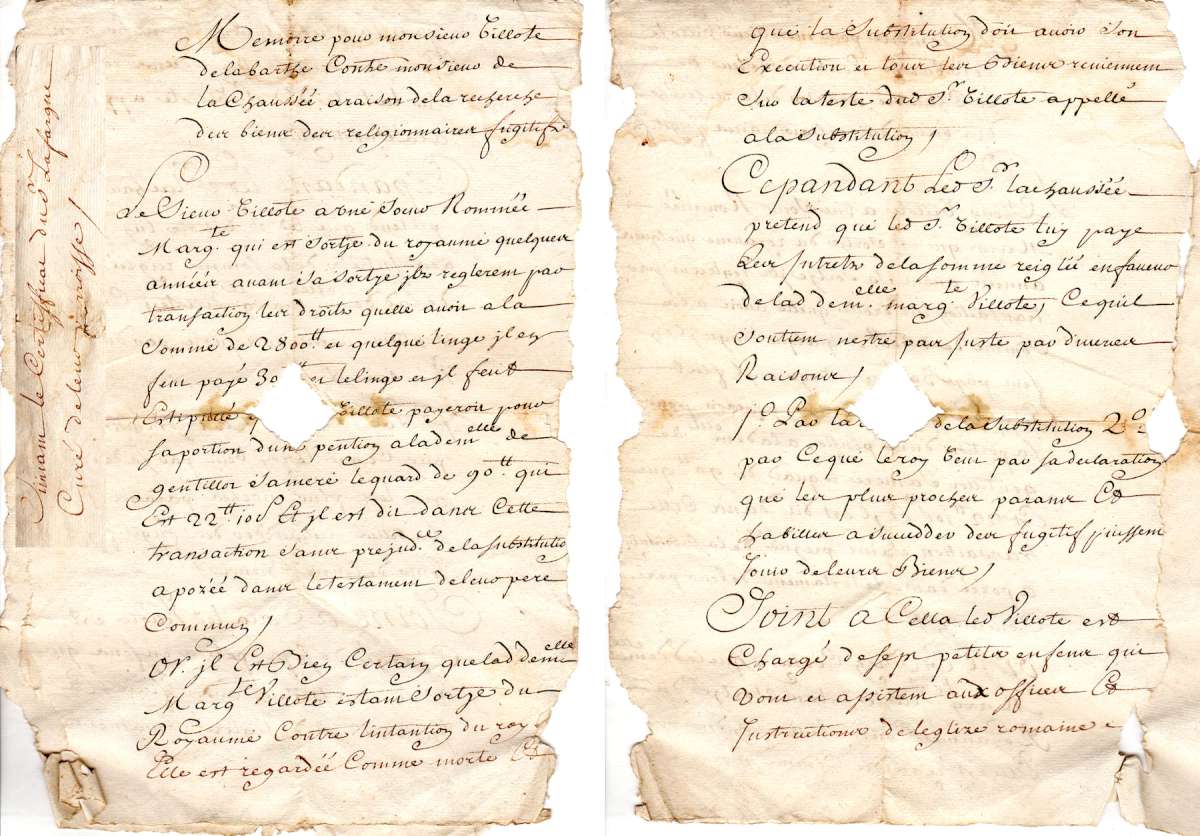 Memoire pour monsieur Villote
delabarthe Contre monsieur de
la Chaussée araison dela recherche
des biens des religionnaires fugitifs
Le Sieur Villote a une Soeur Nommée
Marg.te qui est Sortye du royaume quelques
années avant sa Sortye jls reglerent par
transaction les droits quelle avoit a la
Somme de 2800tt et quelque linge jl en
feut payé 30 et lelinge et jl feut
Estipullé Villote payeroit pour
saportion dune pention a lad dem.elle de
gentillot sa mere lequard de 90tt qui
Est 22tt 10s Et jl est dit dans Cette
transaction sans prejud.ce de la substitution
apozée dans le testament de leur pere
Commun /
Or jl Est Bien Certain que lad demelle
Marg.te Villote estant Sortye du
Royaume Contre lintantion du roy
Elle est regardée Comme morte Et
Suivant le Certifficat dud Sr Lafargue
Curé de leur parroisse /
que la Substitution doit avoir Son
Execution et tous les Biens reviennent
Sur la teste dud Sr. Villote appellé
a la Substitution /
Cepandant Led Sr. lachaussée
pretend que led Sr. Villote luy paye
Les Jntrets de la somme reiglée en faveur
de lad dem.elle marg.te Villote, Cequil
soutient nestre pas Juste par diverses
Raisons /
1o. Par la de la substitution 2o.
par Ceque leroy veut par sa declaration
que les plus proches parans Et
habilles a succedder des fugitifs jouissent
Jouir de leurs Biens /
Joint a Cella led Villote est
Chargé de sept petits enfens qui
vont et assistent aux offices Et
Jnstructions de leglize romaine e